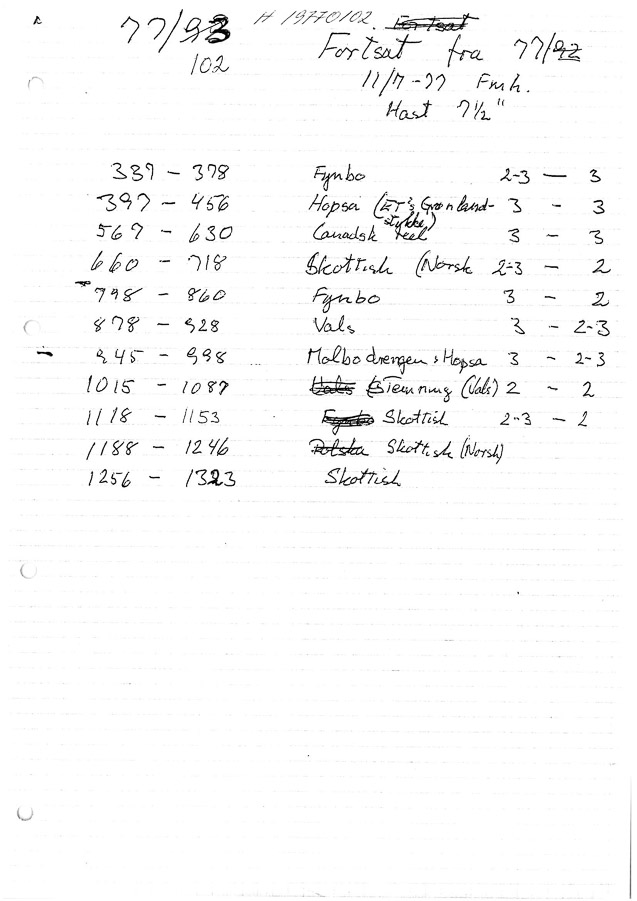 77/93 H 19770102. Fortsat
102 Fortsat fra 77/92
11/7-77 Fmh.
Hast 7½"
339 - 378 Fynbo 2-3 - 3
397 - 456 Hopsa (ET's Grønland- 3 - 3
stykke)
569 - 630 Canadsk reel 3 - 3
660 - 718 Skottish (Norsk 2-3 - 2
798 - 860 Fynbo 3 - 2
878 - 928 Vals 3 - 2-3
- 945 - 998 Molbodrengen + Hopsa 3 - 2-3
1015 - 1087 Vals (Vals) 2 - 2
1118 - 1153 Fynbo Skottish 2-3 - 2
1188 - 1246 Polska Skottish (Norsk)
1256 - 1323 Skottish